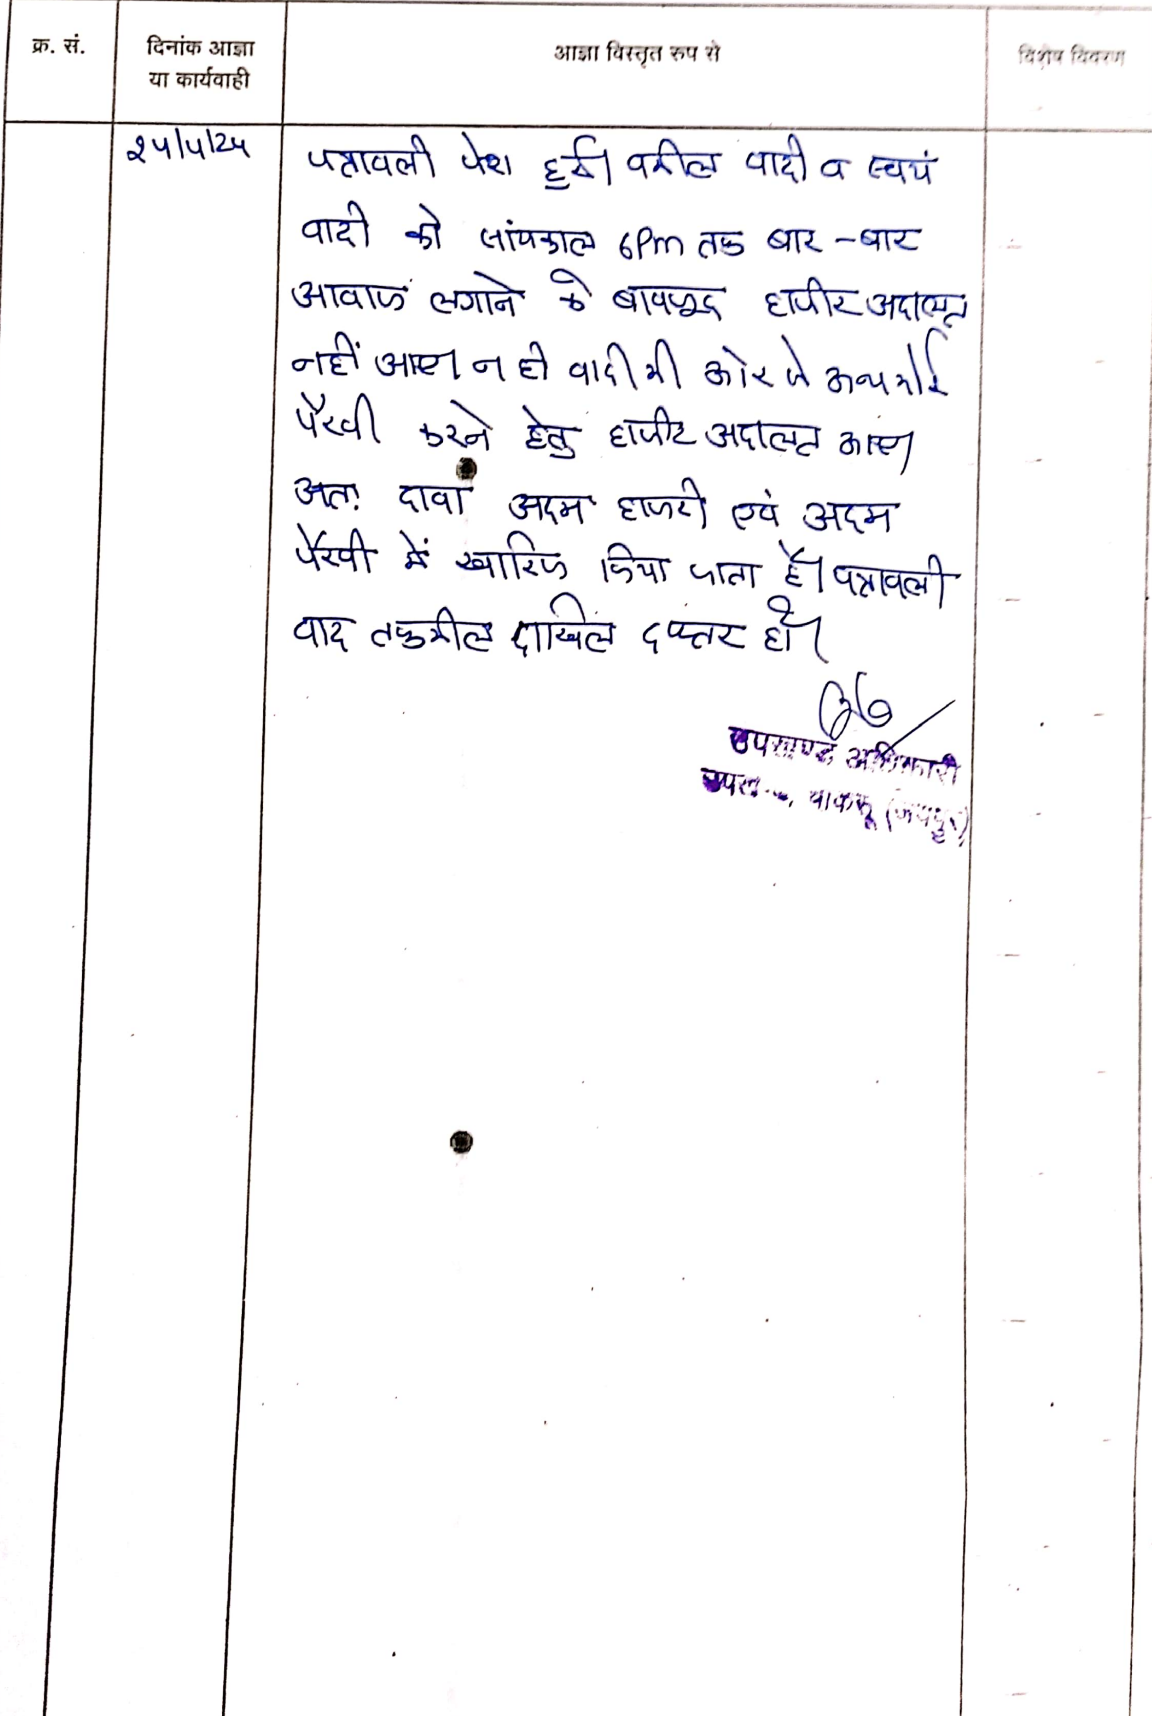 क्र. सं.
दिनांक आज्ञा
या कार्यवाही
आज्ञा विस्तृत रुप से
विशेष विवरण
पत्रावली पेश हुई। वकील वादी व स्वयं
वादी को सांयकाल 6Pm तक बार-बार
आवाज लगाने के बावजूद हाजीर अदालत
नहीं आए। न ही वादी की ओर से अन्य कोई
पैरवी करने हेतु हाजीर अदालत आए।
अतः दावा अदम हाजरी एवं अदम
पैरवी में खारिज किया जाता है। पत्रावली
बाद तकमील दाखिल दफ्तर हो।
उपखण्ड अधिकारी
चाकसू (जयपुर)